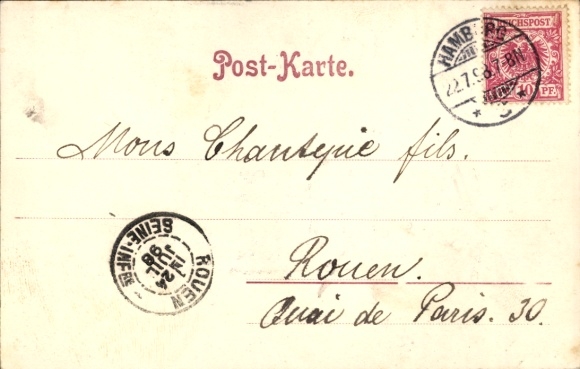 REICHSPOST
10 PF.
HAMBURG
22.7.98.7-8N.
Post-Karte.
Mons Chantepie fils.
Rouen.
Quai de Paris. 30.
ROUEN
24
JUIL
98
SEINE-INFRE